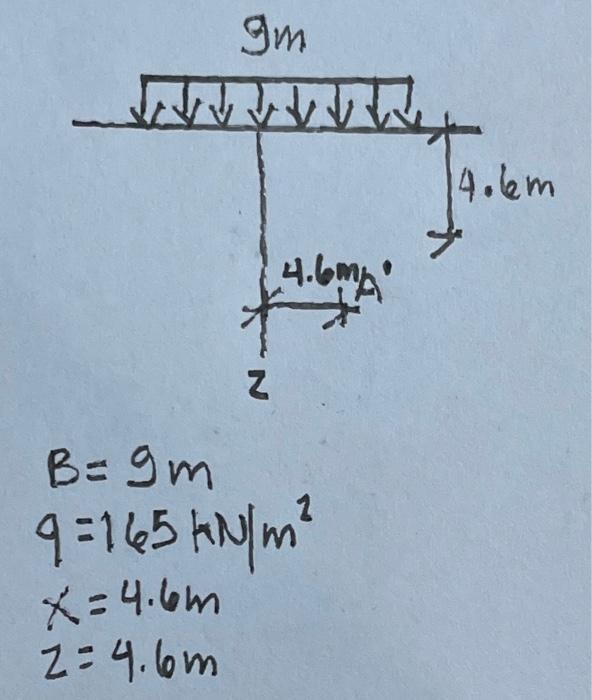 9m
4.6m
4.6m A
z
B = 9m
q = 165 kN/m²
x = 4.6m
z = 4.6m